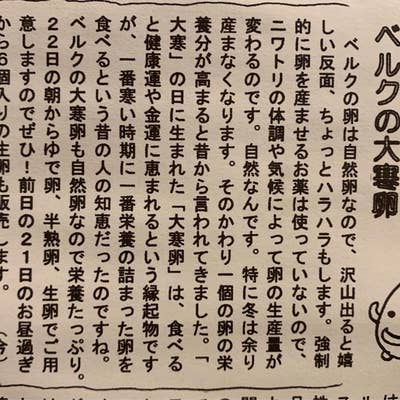 ベルクの大寒卵
ベルクの卵は自然卵なので、沢山出ると嬉
しい反面、ちょっとハラハラもします。強制
的に卵を産ませるお薬は使っていないので、
ニワトリの体調や気候によって卵の生産量が
変わるのです。自然なんです。特に冬は余り
産まなくなります。そのかわり一個の卵の栄
養分が高まると昔から言われてきました。「
大寒」の日に生まれた「大寒卵」は、食べる
と健康運や金運に恵まれるという縁起物です
が、一番寒い時期に一番栄養の詰まった卵を
食べるという昔の人の知恵だったのですね。
ベルクの大寒卵も自然卵なので栄養たっぷり。
22日の朝からゆで卵、半熟卵、生卵でご用
意しますのでぜひ！前日の21日のお昼過ぎ
から6個入りの生卵も販売します。